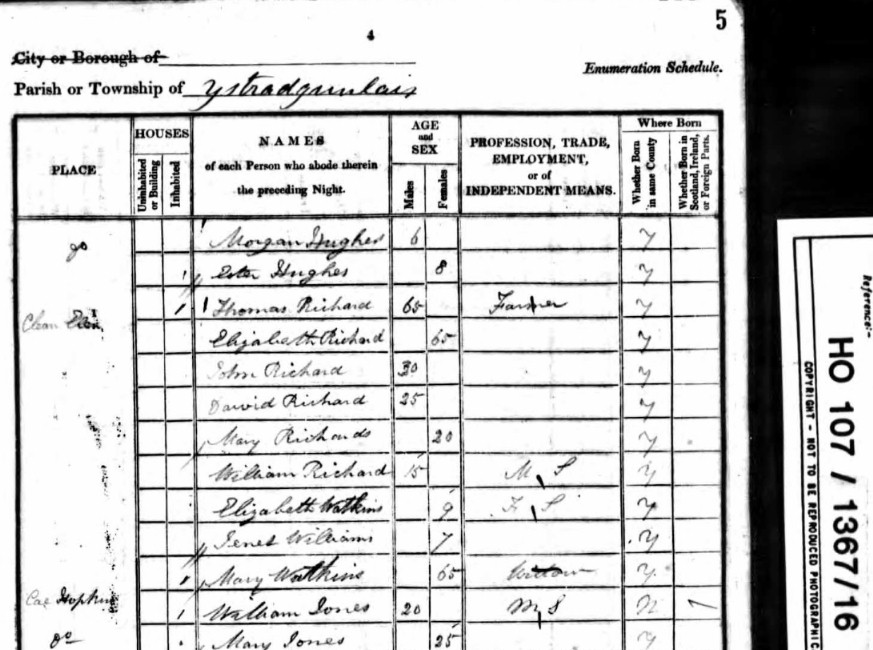 5
4
City or Borough of
Enumeration Schedule.
Parish or Township of Ystradgunlais
PLACE
HOUSES
Uninhabited or Building
Inhabited
NAMES
of each Person who abode therein
the preceding Night.
AGE
and
SEX
Males
Females
PROFESSION, TRADE,
EMPLOYMENT,
or of
INDEPENDENT MEANS.
Where Born
Whether Born in same County
Whether Born in Scotland, Ireland, or Foreign Parts.
do Morgan Hughes 6 y
Ester Hughes 8 y
1 Thomas Richard 65 Farmer y
Elizabeth Richard 65 y
John Richard 30 y
David Richard 25 y
Mary Richards 20 y
William Richard 15 M S y
Elizabeth Watkins 9 F S y
Jenet Williams 7 y
Mary Watkins 65 Widow y
Cae Hopkin 1 William Jones 20 M S N
do Mary Jones 25 y
Reference:-
HO 107 / 1367/16
COPYRIGHT - NOT TO BE REPRODUCED PHOTOGRAPHIC